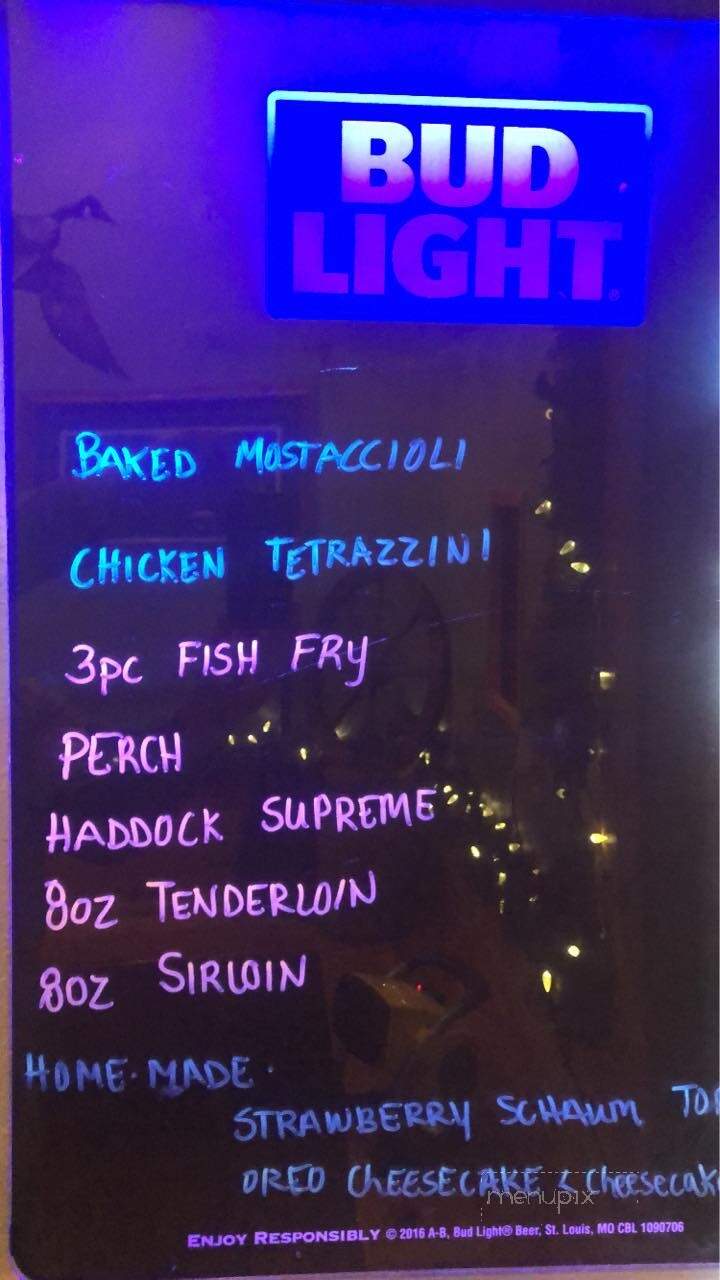 BUD
LIGHT®
BAKED MOSTACCIOLI
CHICKEN TETRAZZINI
3PC FISH FRY
PERCH
HADDOCK SUPREME
8OZ TENDERLOIN
8OZ SIRLOIN
HOME·MADE·
STRAWBERRY SCHAUM
OREO CHEESECAKE &
menupix
ENJOY RESPONSIBLY © 2016 A-B, Bud Light® Beer, St. Louis, MO CBL 1090706